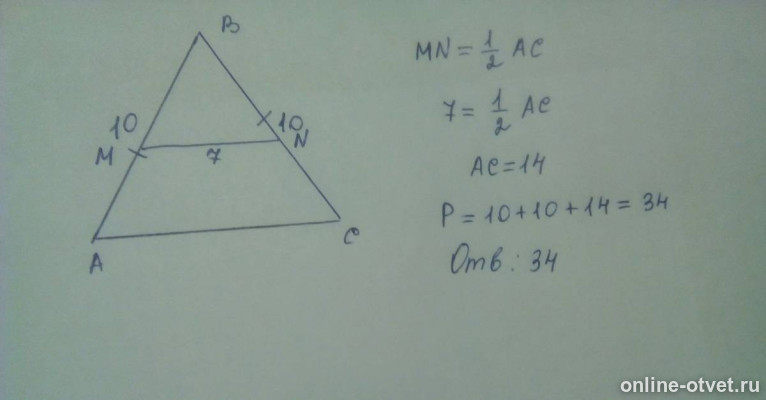 B
10
10
M
7
N
A
C
MN = 1/2 AC
7 = 1/2 AC
AC = 14
P = 10 + 10 + 14 = 34
Отв: 34
online-otvet.ru